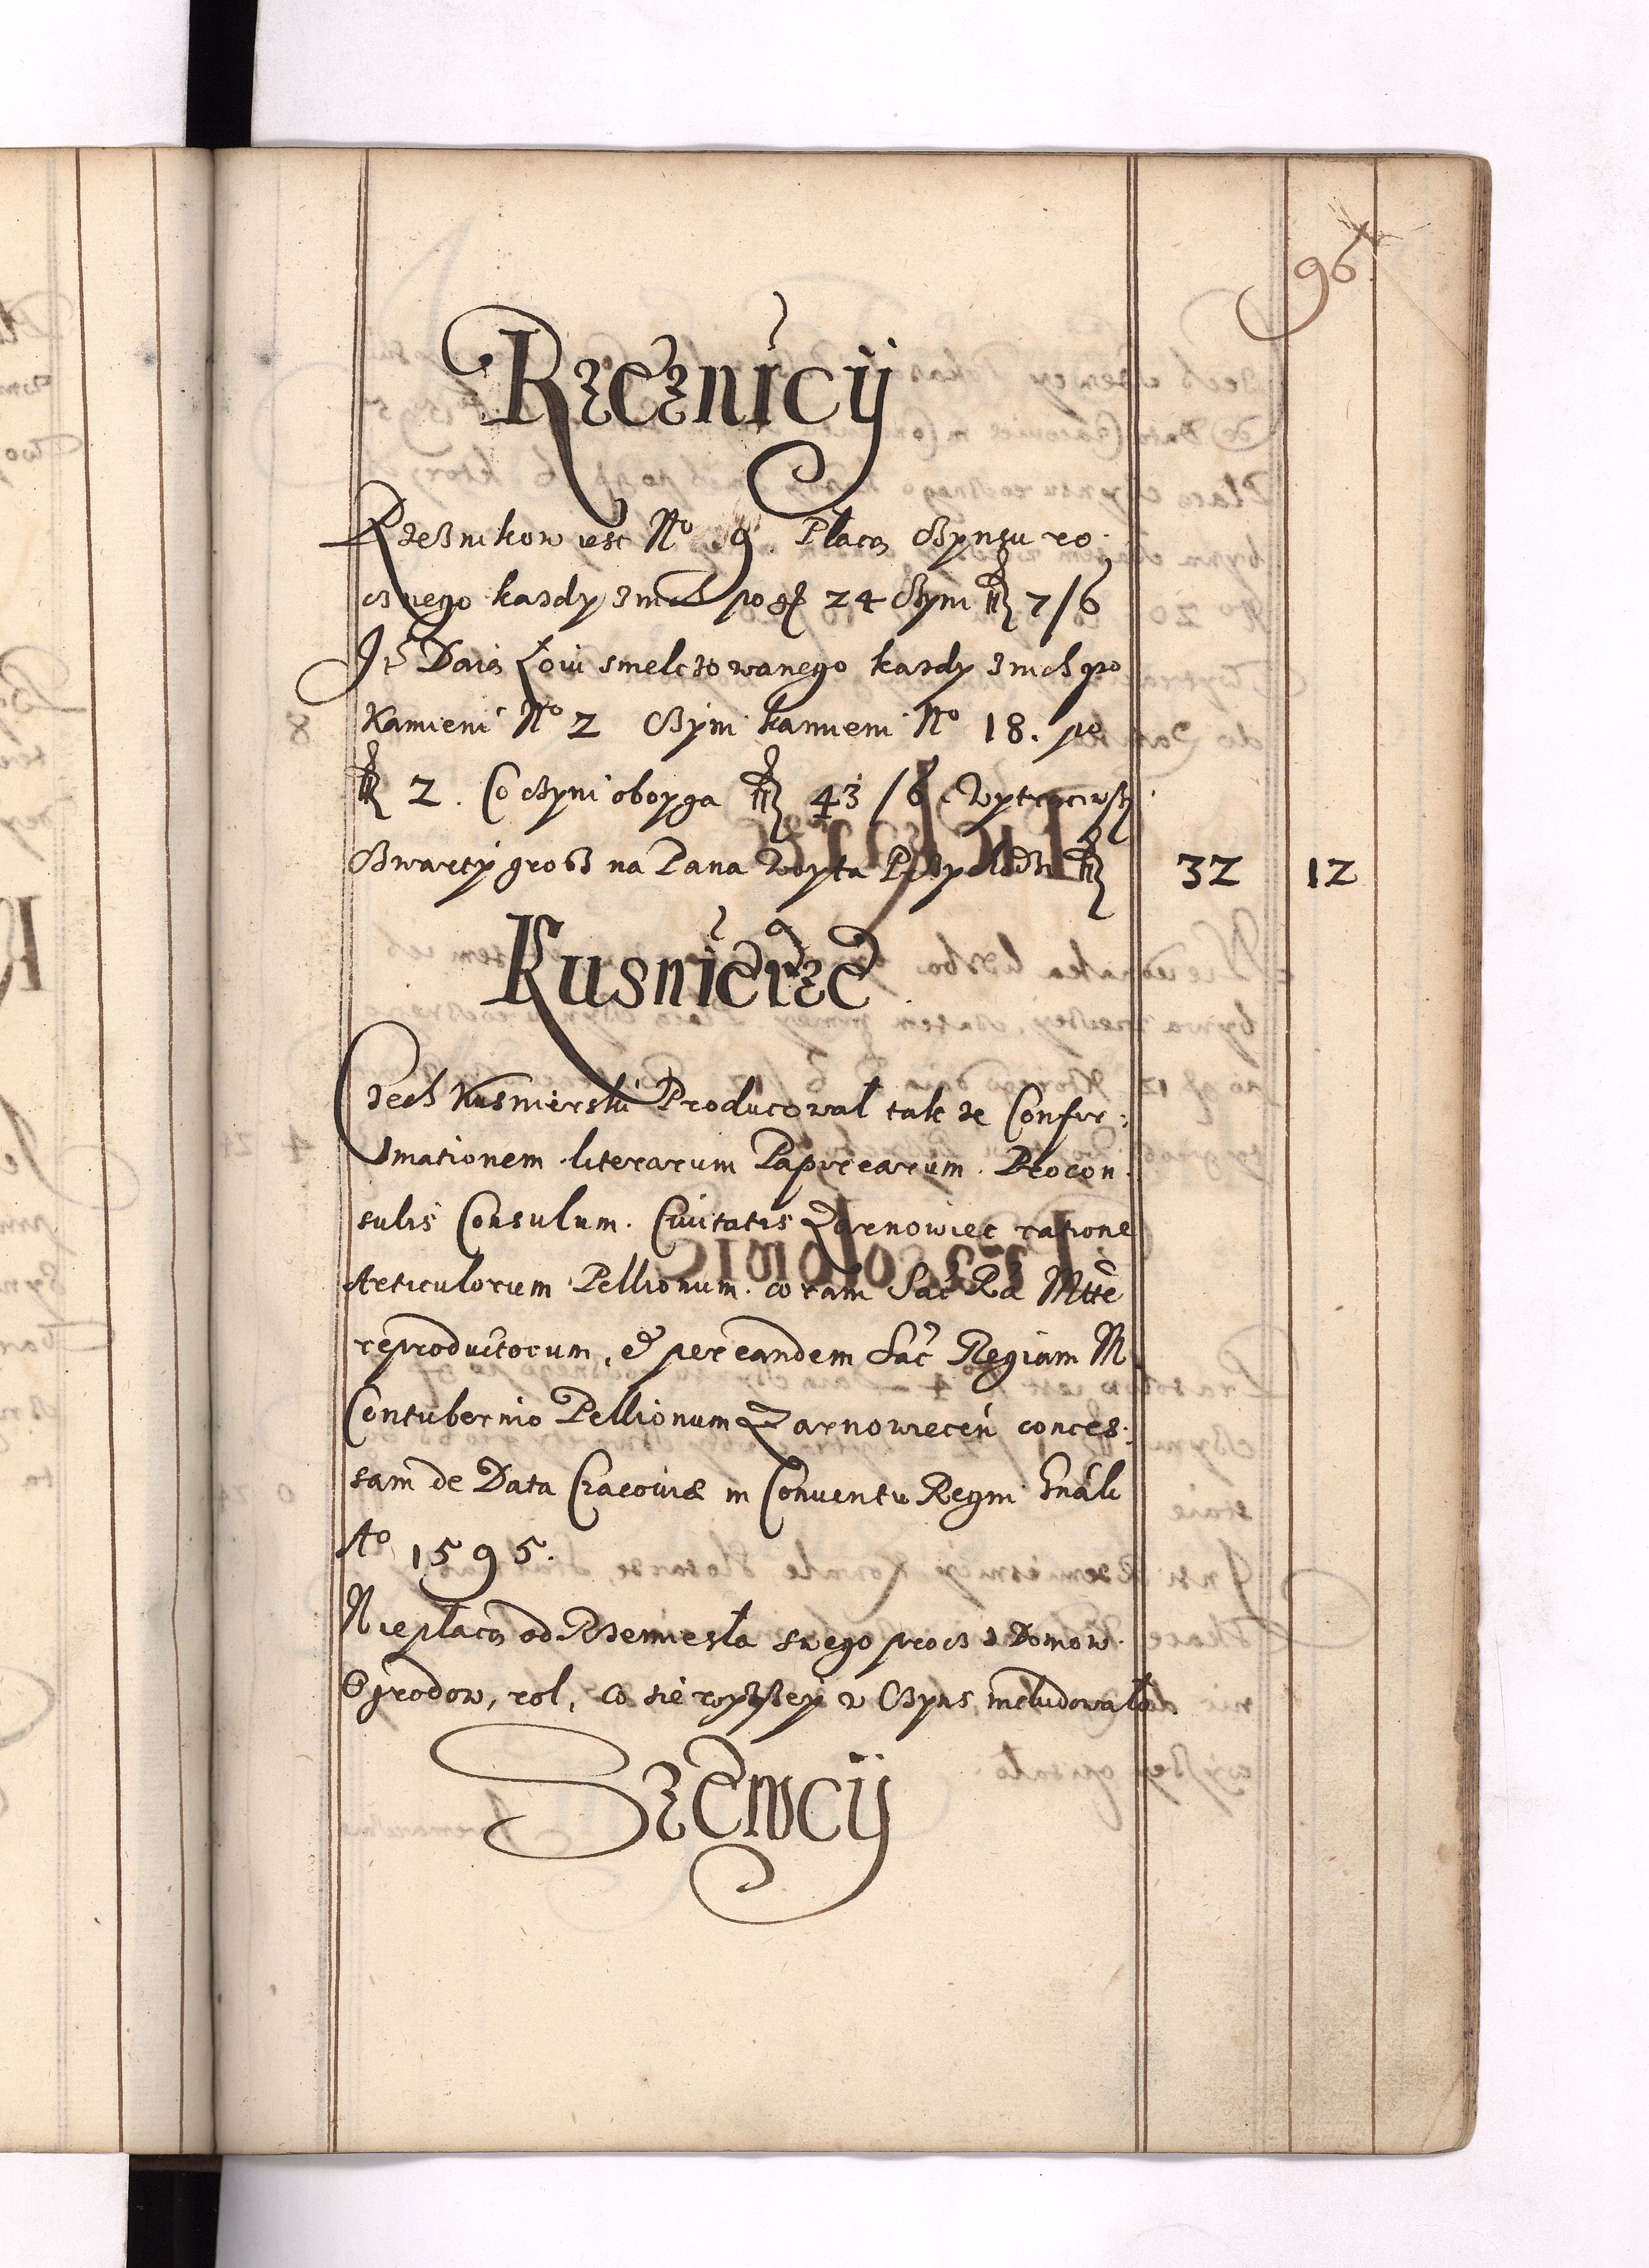 96.
Rzeznicy
Rzeßnikow iest No 9. Płacą Czynsu ro:
cznego kazdy z nich po gr 24 Czyni fl 7/6
Itm Daią Łoiu smelczowanego kazdy z nich po
Kamieni No 2 Czyni kamieni No 18. po
fl 2. Co czyni oboyga fl 43/6 Wytrąciwszy
Czwarty grosz na Pana Woyta Przychodzi fl 32 12
Kusnierze
Cech Kusnierski Producował takze Confir:
mationem literarum Papirearum Procon:
sulis Consulum Civitatis Zarnowiec ratione
Articulorum Pellionum coram Sac Ra Mtte
reproductorum, & per eandem Sac Regiam M
Contubernio Pellionum Zarnowiecen conces:
sam de Data Cracoviæ in Conventu Regni Gnali
Ao 1595.
Nie płacą od Rzemiesła swego procz z Domow
Ogrodow, rol, co sie wyzszey w Czyns includowało
Szewcy